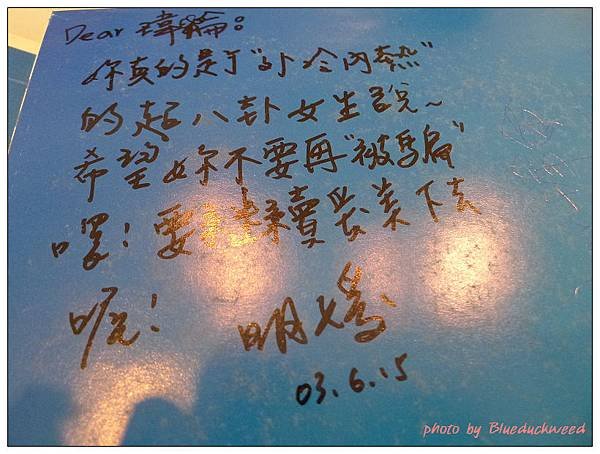 Dear 瑋綸:
妳真的是个"外冷內熱"
的超八卦女生說~
希望妳不要再"被騙"
囉! 要繼續長美下去
喔! 明
03.6.15
photo by Blueduckweed